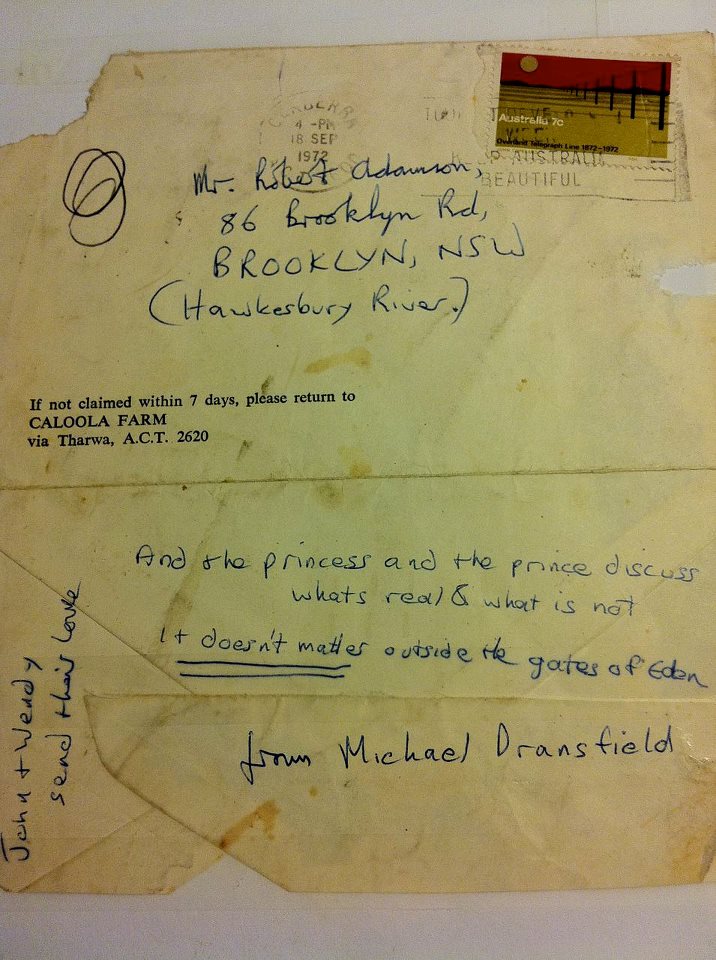 CANBERRA
4 - PM
18 SEP
1972
Australia 7c
Overland Telegraph Line 1872-1972
AUSTRALIA
BEAUTIFUL
Mr. Robert Adamson,
86 Brooklyn Rd,
BROOKLYN, NSW
(Hawkesbury River.)
If not claimed within 7 days, please return to
CALOOLA FARM
via Tharwa, A.C.T. 2620
And the princess and the prince discuss
whats real & what is not
It doesn't matter outside the gates of Eden
from Michael Dransfield
John + Wendy
send their love